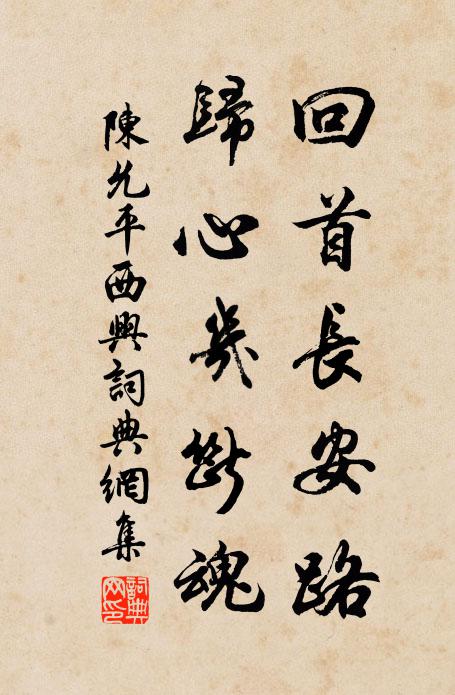 回首長安路
歸心幾斷魂
陳允平西興詞典網集
詞典網印